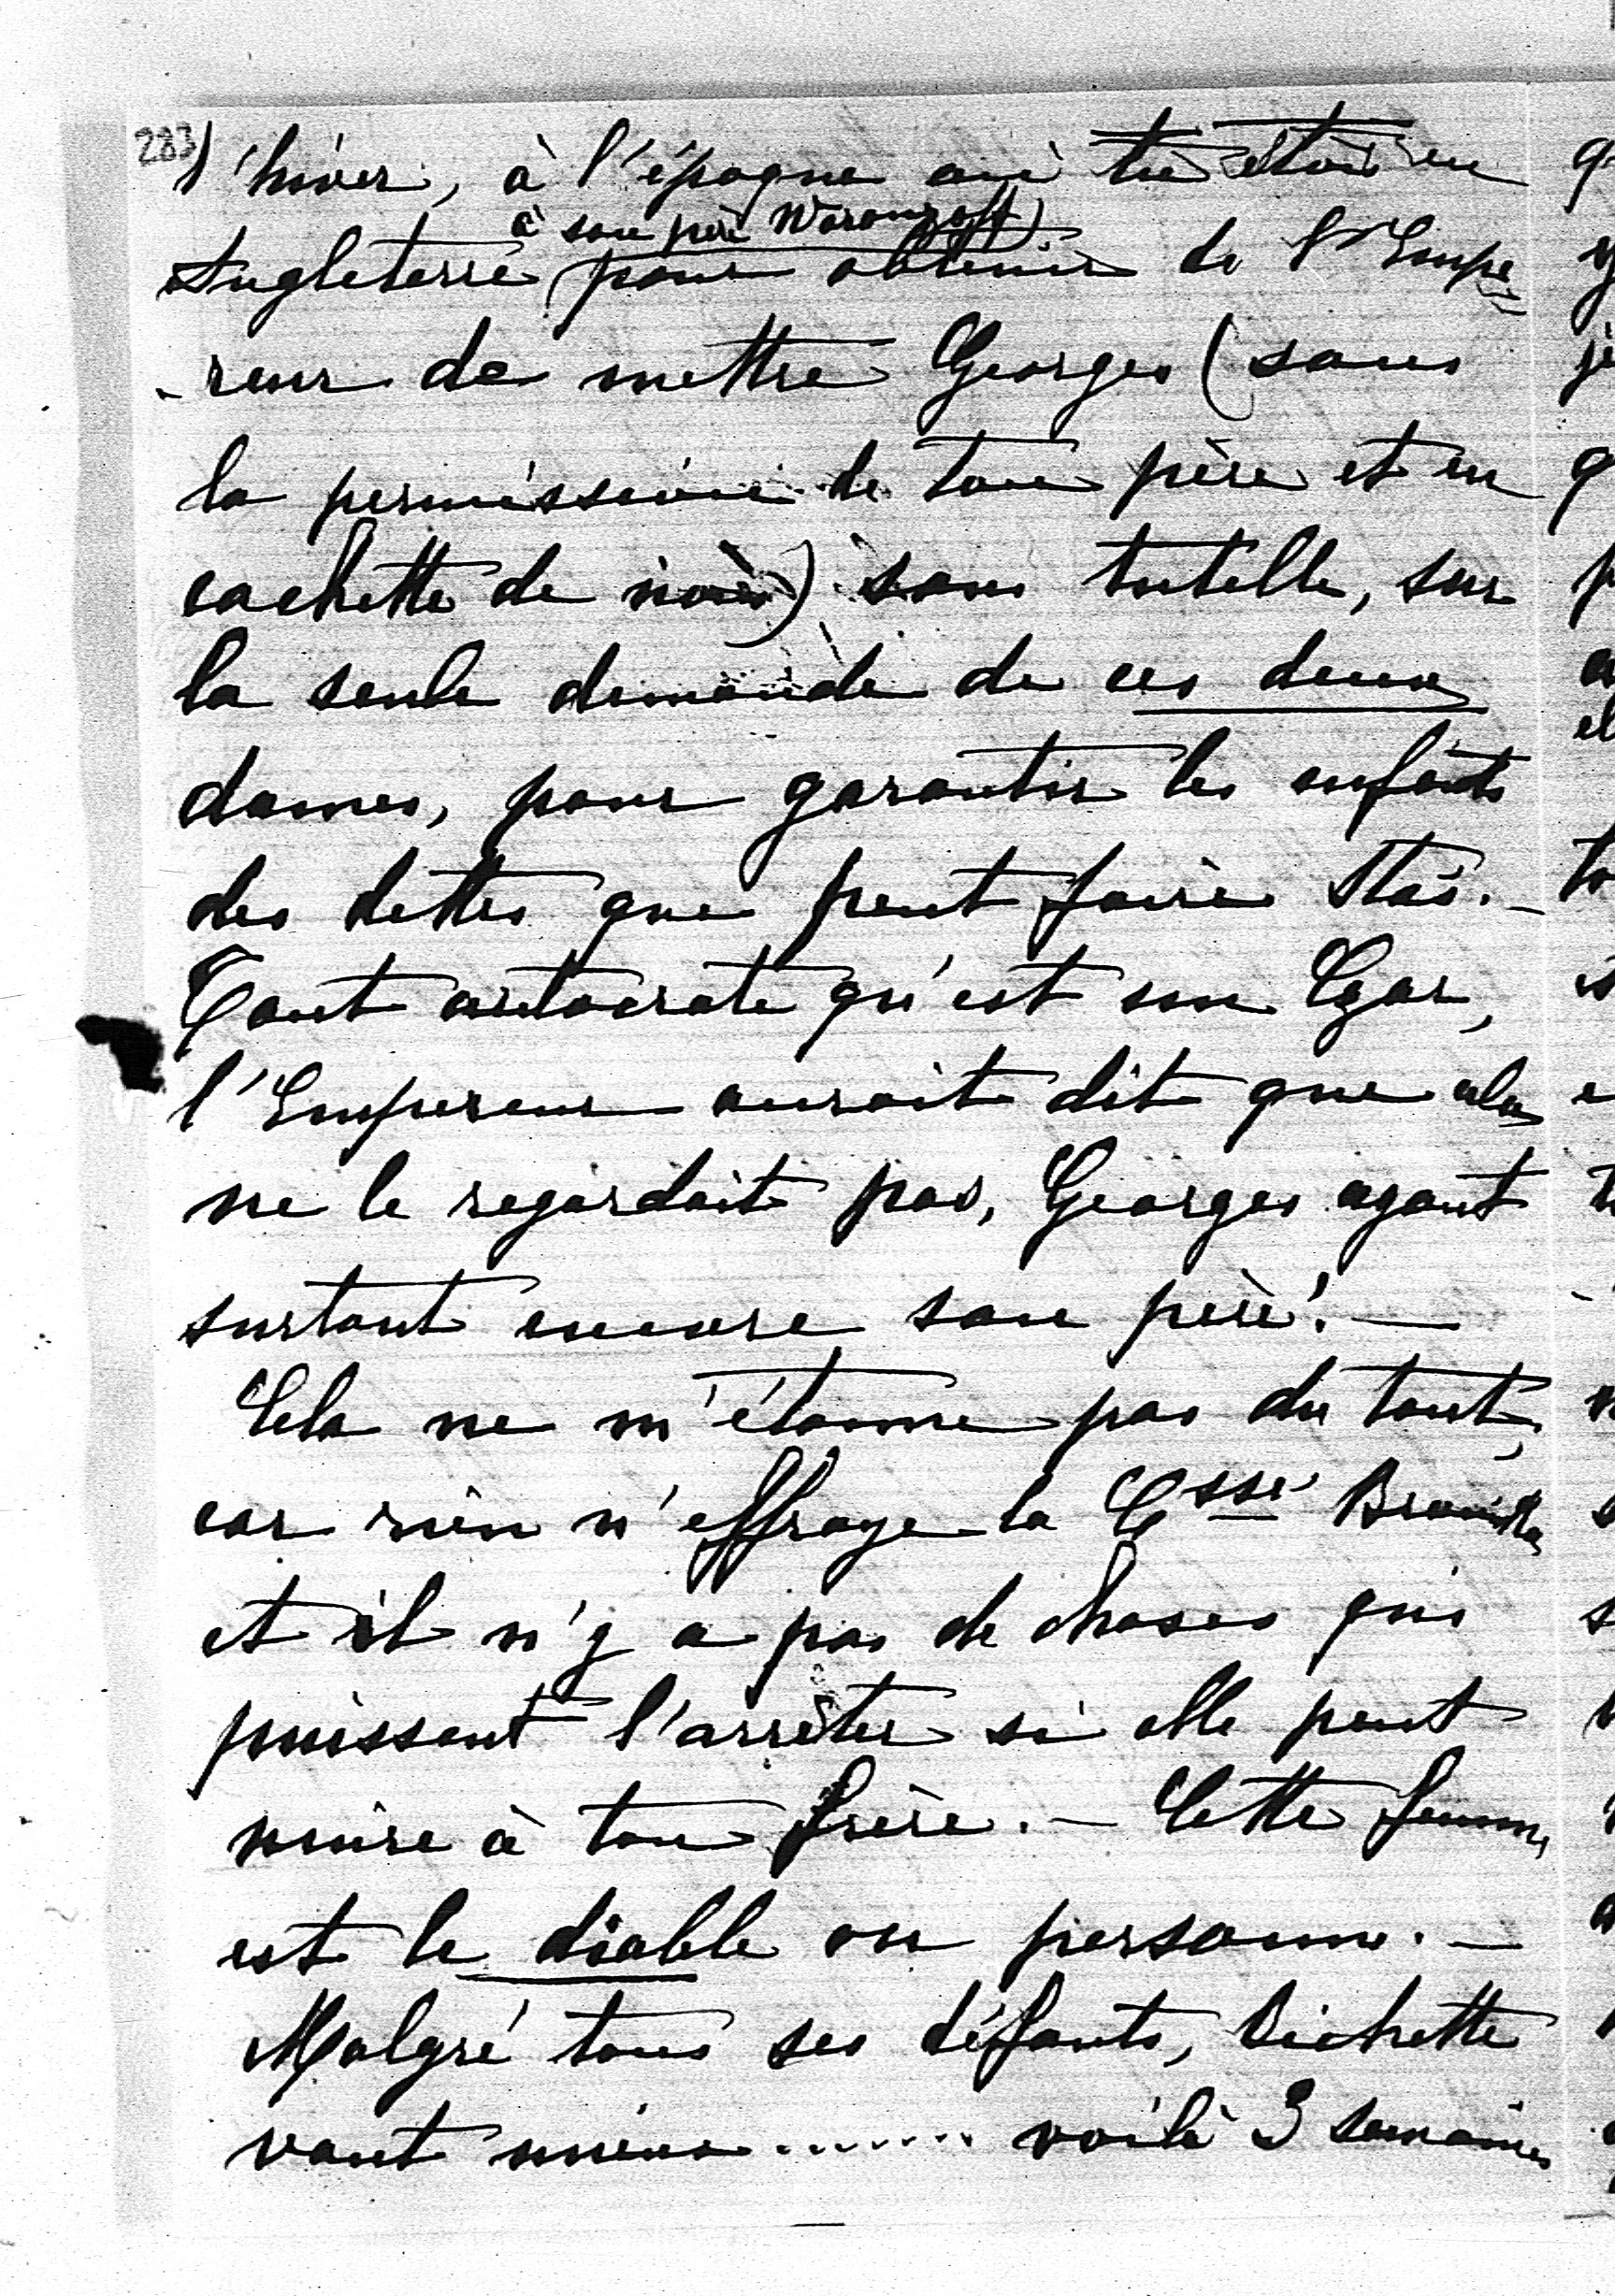 283)
l'hiver, à l'époque où tu étais en
à son père Woronzoff)
Angleterre (pour obtenir de l'Empe=
-reur de mettre Georges (sans
la permission de ton père et en
cachette de nous) sous tutelle, sur
la seule demande de ces deux
dames, pour garantir les enfants
des dettes que peut faire Stas. –
Tout autocrate qu'est un Czar,
l'Empereur aurait dit que cela
ne le regardait pas, Georges ayant
surtout encore son père! –
Cela ne m'étonne pas du tout,
car rien n'effraye la Ctsse
et il n'y a pas de choses qui
puissent l'arrêter si elle peut
nuire à ton frère. – Cette femme
est le diable en personne. –
Malgré tous ses défauts, Bichette
vaut mieux ....... voilà 3 semaines